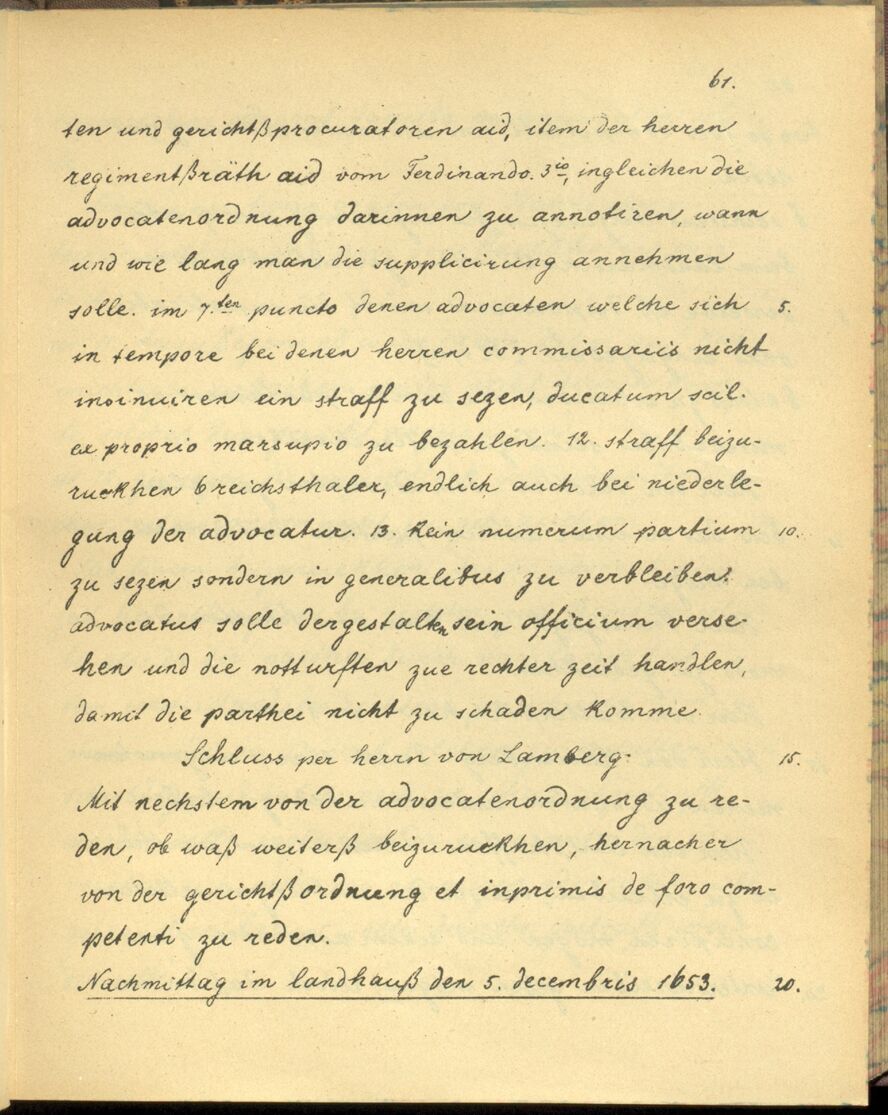 61.
ten und gerichtßprocuratoren aid, item der herren
regimentßräth aid vom Ferdinando. 3io, ingleichen die
advocatenordnung darinnen zu annotiren, wann
und wie lang man die supplicirung annehmen
solle. im 7.ten puncto denen advocaten welche sich 5.
in tempore bei denen herren commissariis nicht
insinuiren ein straff zu sezen, ducatum scil.
ex proprio marsupio zu bezahlen. 12. straff beizu-
ruckhen 6 reichsthaler, endlich auch bei niederle-
gung der advocatur. 13. kein numerum partium 10.
zu sezen sondern in generalibus zu verbleiben:
advocatus solle dergestalten sein officium verse-
hen und die notturften zue rechter zeit handlen,
damit die parthei nicht zu schaden komme.
Schluss per herrn von Lamberg: 15.
Mit nechstem von der advocatenordnung zu re-
den, ob waß weiterß beizuruckhen, hernacher
von der gerichtßordnung et inprimis de foro com-
petenti zu reden.
Nachmittag im landhauß den 5. decembris 1653. 20.